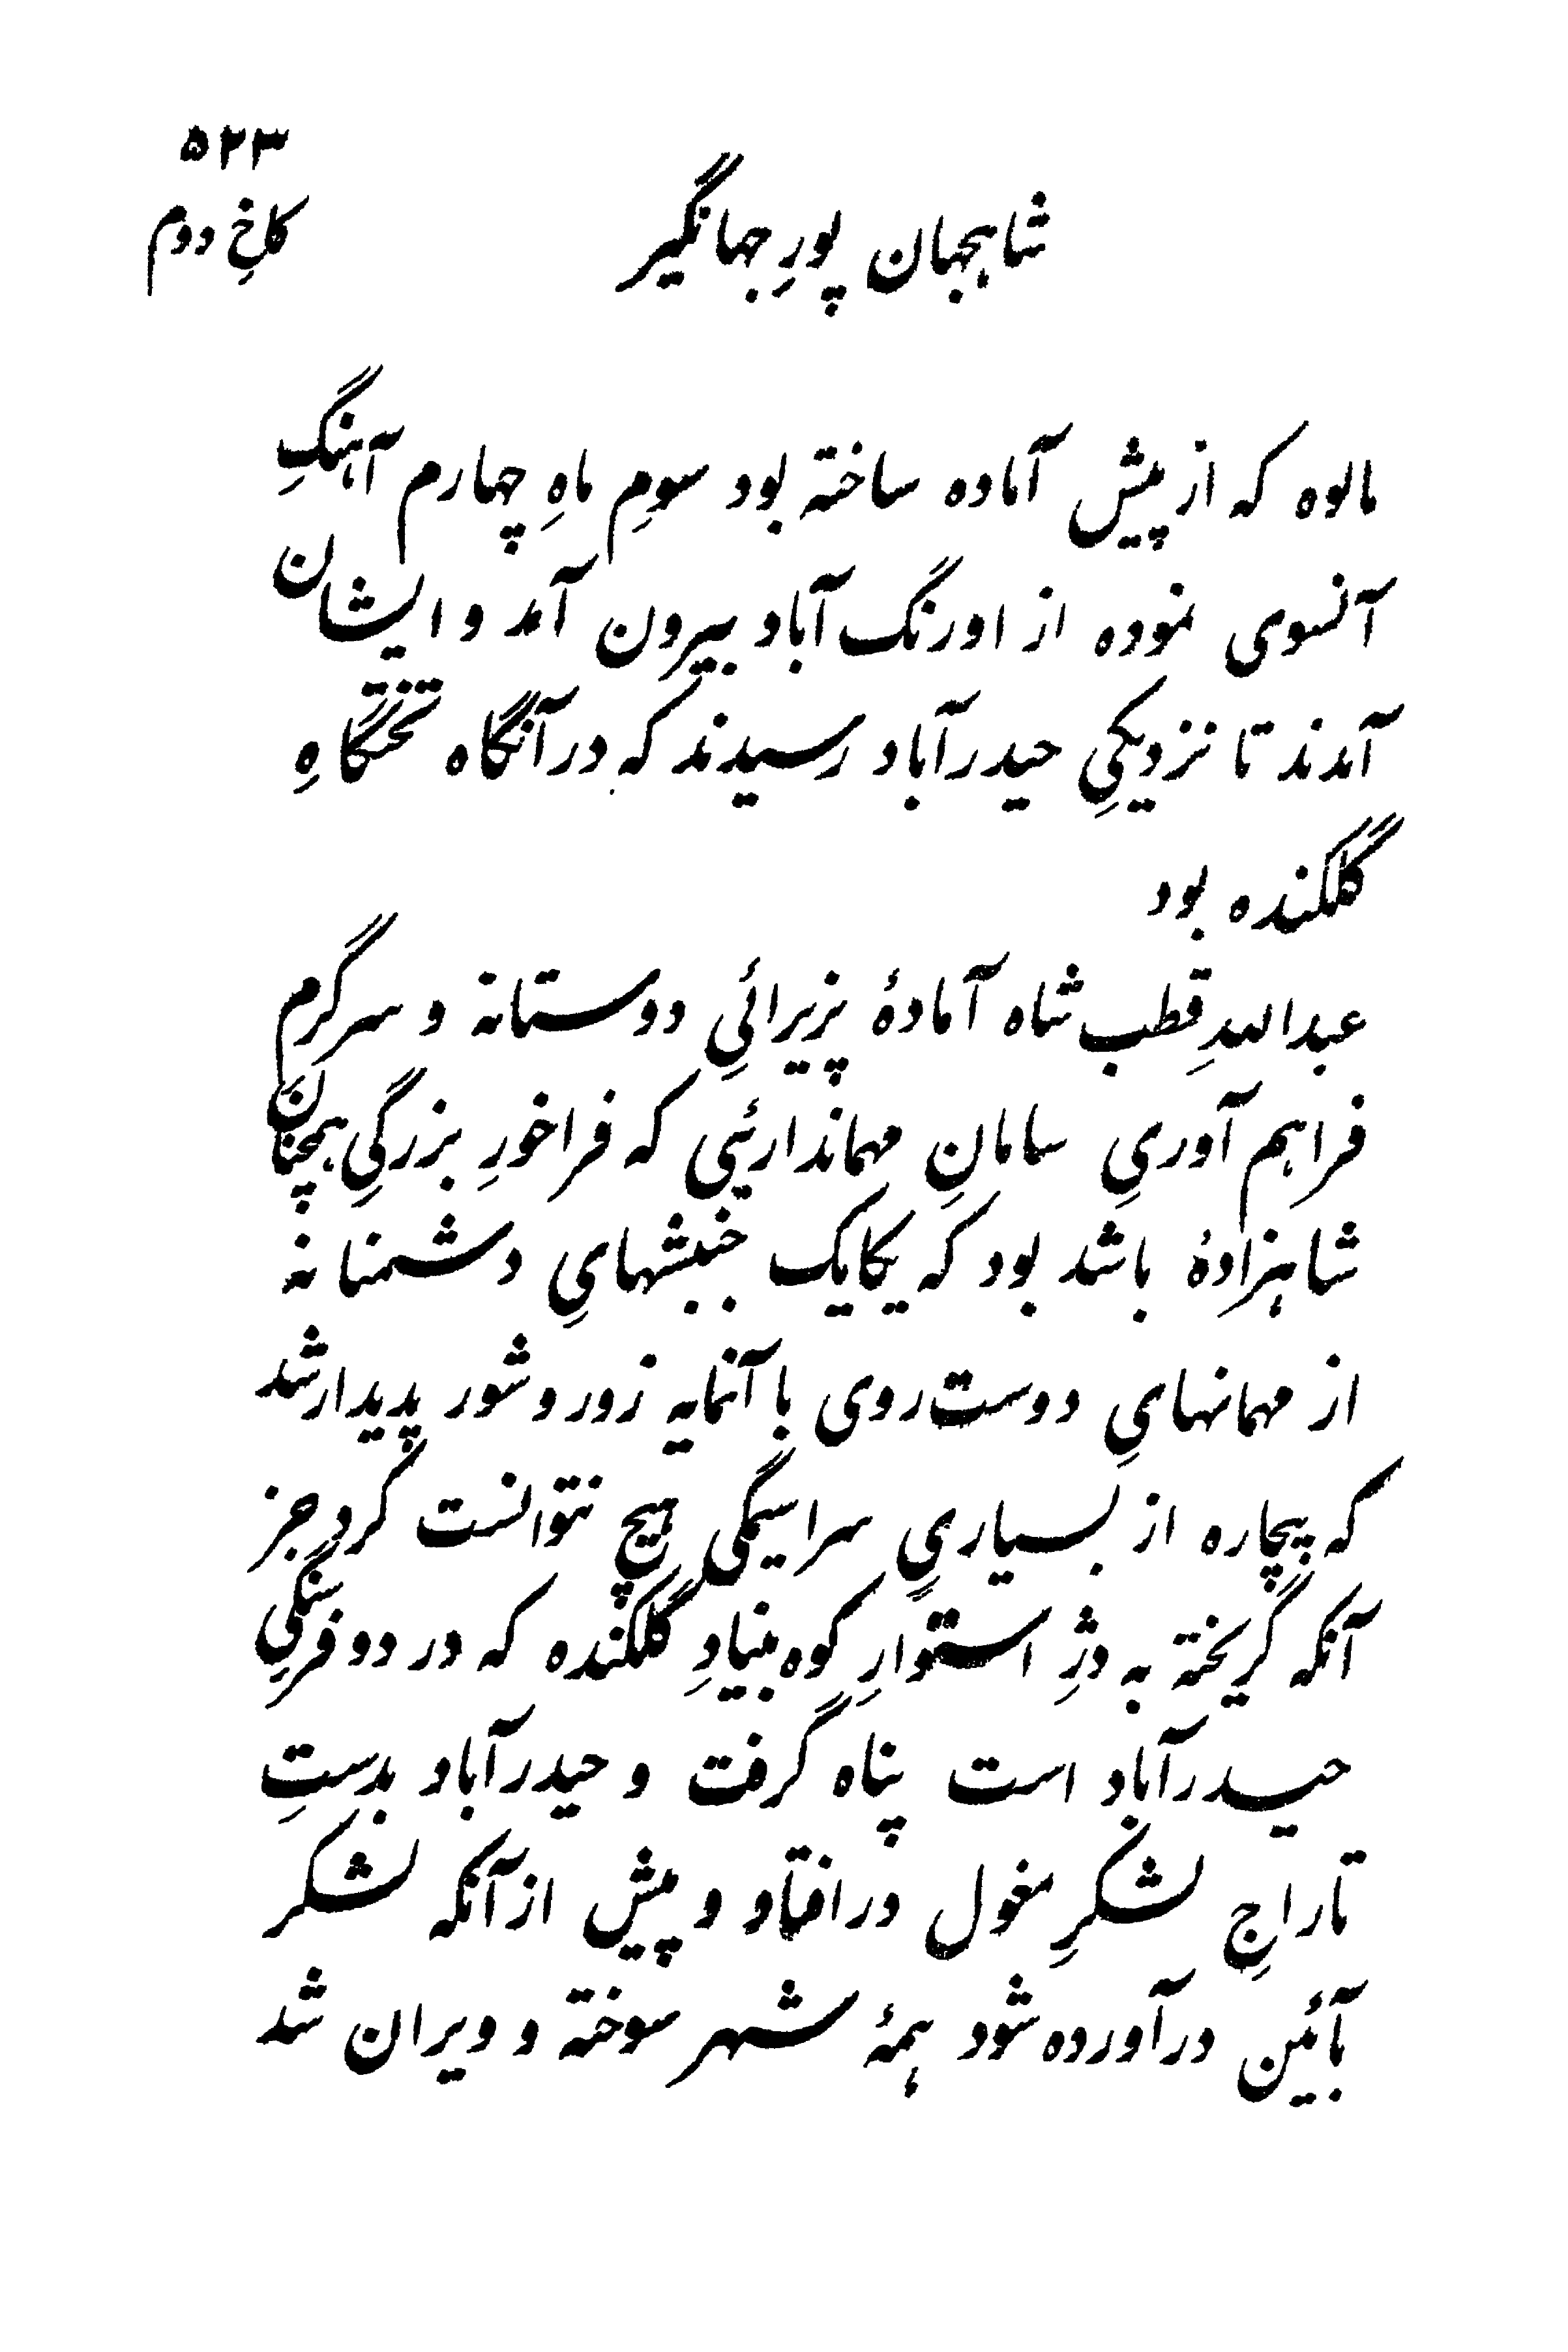 ۵۲۳
کاخِ دوم
شاہجہان پورِ جہانگیر
مالوه که از پیش آماده ساخته بود سومِ ماهِ چهارم آهنگِ
آنسوی نموده از اورنگ آباد بیرون آمد و ایشان
آمدند تا نزدیکیِ حیدرآباد رسیدند که درآنگاه تختگاهِ
گلکنده بود
عبداللهِ قطب شاه آمادهٔ پزیرائیِ دوستانه و سرگرم
فراهم آوریِ سامانِ مهمانداریئی که فراخورِ بزرگیِ همچنان
شاهزادهٔ باشد بود که یکایک جنبشهایِ دشمنانه
از مهمانهایِ دوست روی با آنمایه زور و شور پدیدار شد
که بیچاره از بسیاریِ سراسیمگی هیچ نتوانست کرد جز
آنکه گریخته به دژِ استوارِ کوه بنیادِ گلکنده که در دو فرسنگیِ
حیدرآباد است پناه گرفت و حیدرآباد بدستِ
تاراجِ لشکرِ مغول درافتاد و پیش ازآنکه لشکر
بآئین درآورده شود همهٔ شهر سوخته و ویران شد